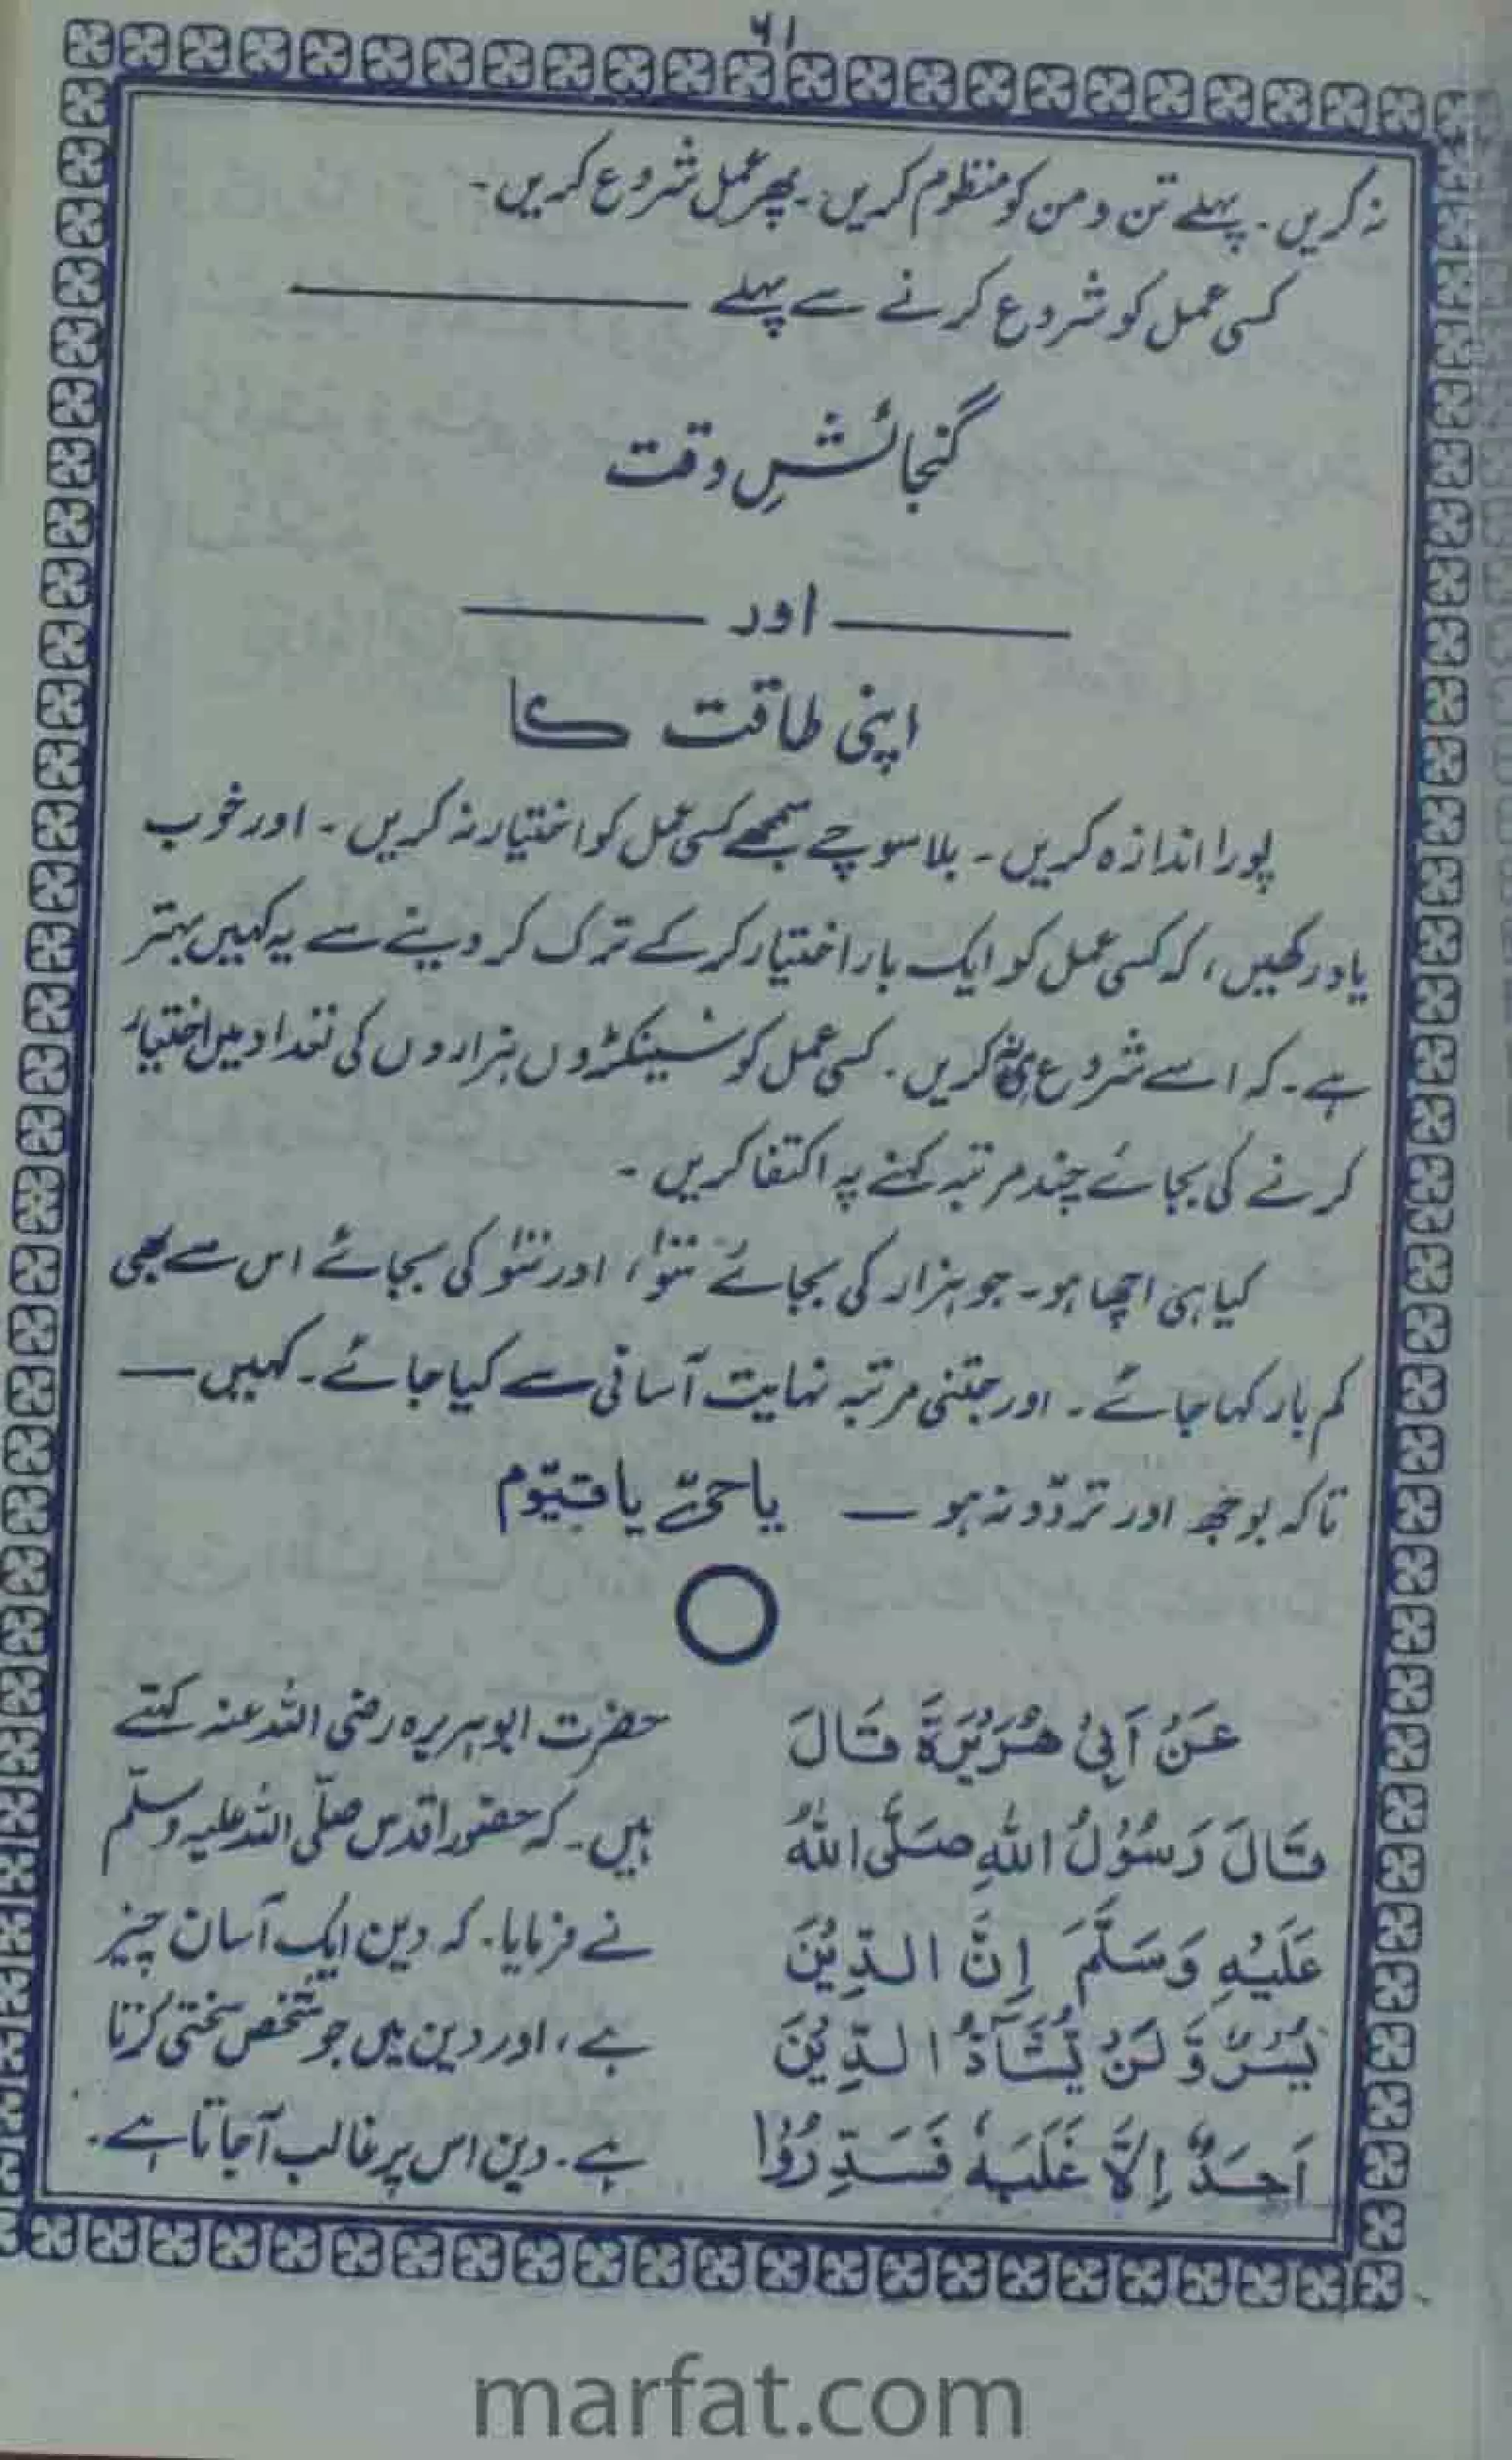 ۶۱
نہ کریں۔ پہلے تن و من کو منظوم کریں۔ پھر عمل شروع کریں۔
کسی عمل کو شروع کرنے سے پہلے ــــــــ
گنجائشِ وقت
ــــــــ اور ــــــــ
اپنی طاقت کا
پورا اندازہ کریں۔ بلا سوچے سمجھے کسی عمل کو اختیار نہ کریں۔ اور خوب
یاد رکھیں، کہ کسی عمل کو ایک بار اختیار کر کے ترک کر دینے سے یہ کہیں بہتر
ہے۔ کہ اسے شروع ہی نہ کریں۔ کسی عمل کو سینکڑوں ہزاروں کی تعداد میں اختیار
کرنے کی بجائے چند مرتبہ کہنے پہ اکتفا کریں۔
کیا ہی اچھا ہو۔ جو ہزار کی بجائے سَو، اور سَو کی بجائے اس سے بھی
کم بار کہا جائے۔ اور جتنی مرتبہ نہایت آسانی سے کیا جائے۔ کہیں ــــ
تاکہ بوجھ اور تردّد نہ ہو ــــ یا حیّ یا قیّوم
عَنْ اَبِیْ هُرَیْرَةَ قَالَ
قَالَ رَسُوْلُ اللهِ صَلَّی اللهُ
عَلَیْهِ وَسَلَّمَ اِنَّ الدِّیْنَ
یُسْرٌ وَّ لَنْ یُّشَآدَّ الدِّیْنَ
اَحَدٌ اِلَّا غَلَبَهٗ فَسَدِّدُوْا
حضرت ابو ہریرہ رضی اللہ عنہ کہتے
ہیں۔ کہ حضور اقدس صلّی اللہ علیہ وسلّم
نے فرمایا۔ کہ دین ایک آسان چیز
ہے، اور دین میں جو شخص سختی کرتا
ہے۔ دین اس پر غالب آجاتا ہے۔
marfat.com